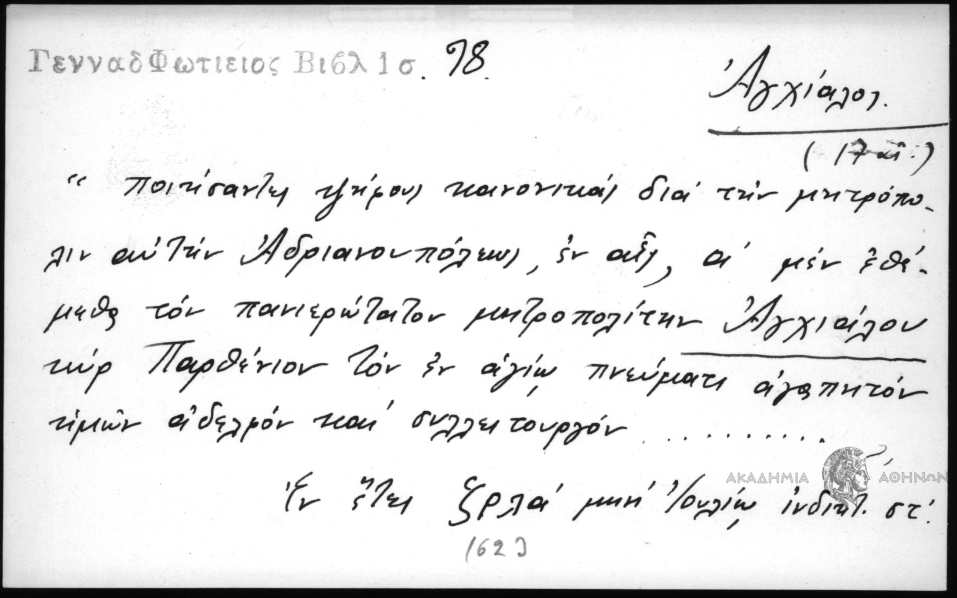 Γενναδ Φωτιειος Βιβλ 1 σ. 78.
Ἀγχίαλος.
(17 αἰ.)
“ ποιήσαντες ψήφους κανονικάς διά τήν μητρόπο-
λιν αὐτήν Ἀδριανουπόλεως, ἐν αἷς, ἁ μέν ἐθέ-
μεθα τόν πανιερώτατον μητροπολίτην Ἀγχιάλου
κύρ Παρθένιον τόν ἐν ἁγίῳ πνεύματι ἀγαπητόν
ἡμῶν ἀδελφόν καί συλλειτουργόν ..........
Ἐν ἔτει ζρλά μηνί Ἰουλίῳ ἰνδικτ. στ'.
1623
ΑΚΑΔΗΜΙΑ ΑΘΗΝΩΝ